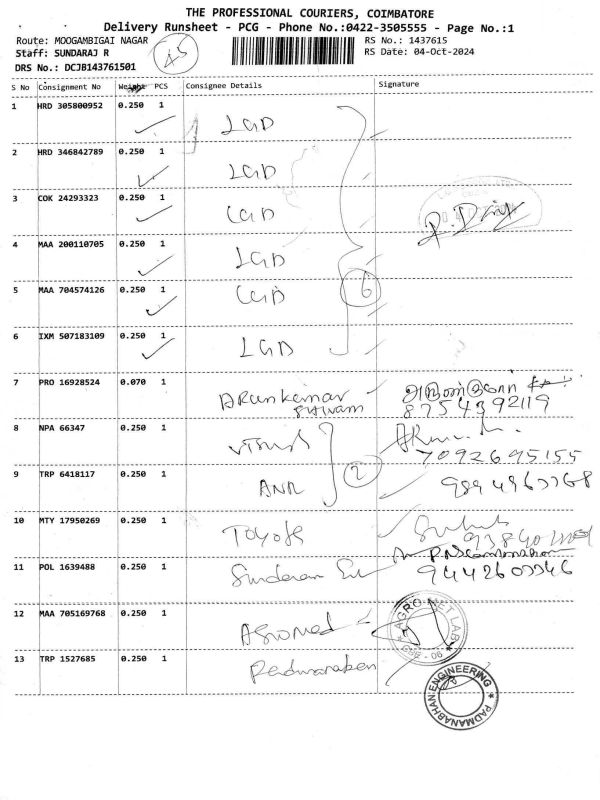 THE PROFESSIONAL COURIERS, COIMBATORE
Delivery Runsheet - PCG - Phone No.:0422-3505555 - Page No.:1
Route: MOOGAMBIGAI NAGAR
RS No.: 1437615
Staff: SUNDARAJ R
45
RS Date: 04-Oct-2024
DRS No.: DCJB143761501
S No Consignment No Weight PCS Consignee Details Signature
1 HRD 305800952 0.250 1 LGD
2 HRD 346842789 0.250 1 LGD
3 COK 24293323 0.250 1 LGD
4 MAA 200110705 0.250 1 LGD
5 MAA 704574126 0.250 1 LGD
6
6 IXM 507183109 0.250 1 LGD
7 PRO 16928524 0.070 1 ARunkumar
8754392119
8 NPA 66347 0.250 1
7092695155
9 TRP 6418117 0.250 1 ANR 2
10 MTY 17950269 0.250 1 Toyota
11 POL 1639488 0.250 1
12 MAA 705169768 0.250 1
AGRO NET LAB
CBE - 06
13 TRP 1527685 0.250 1
PADMANABHAN ENGINEERING